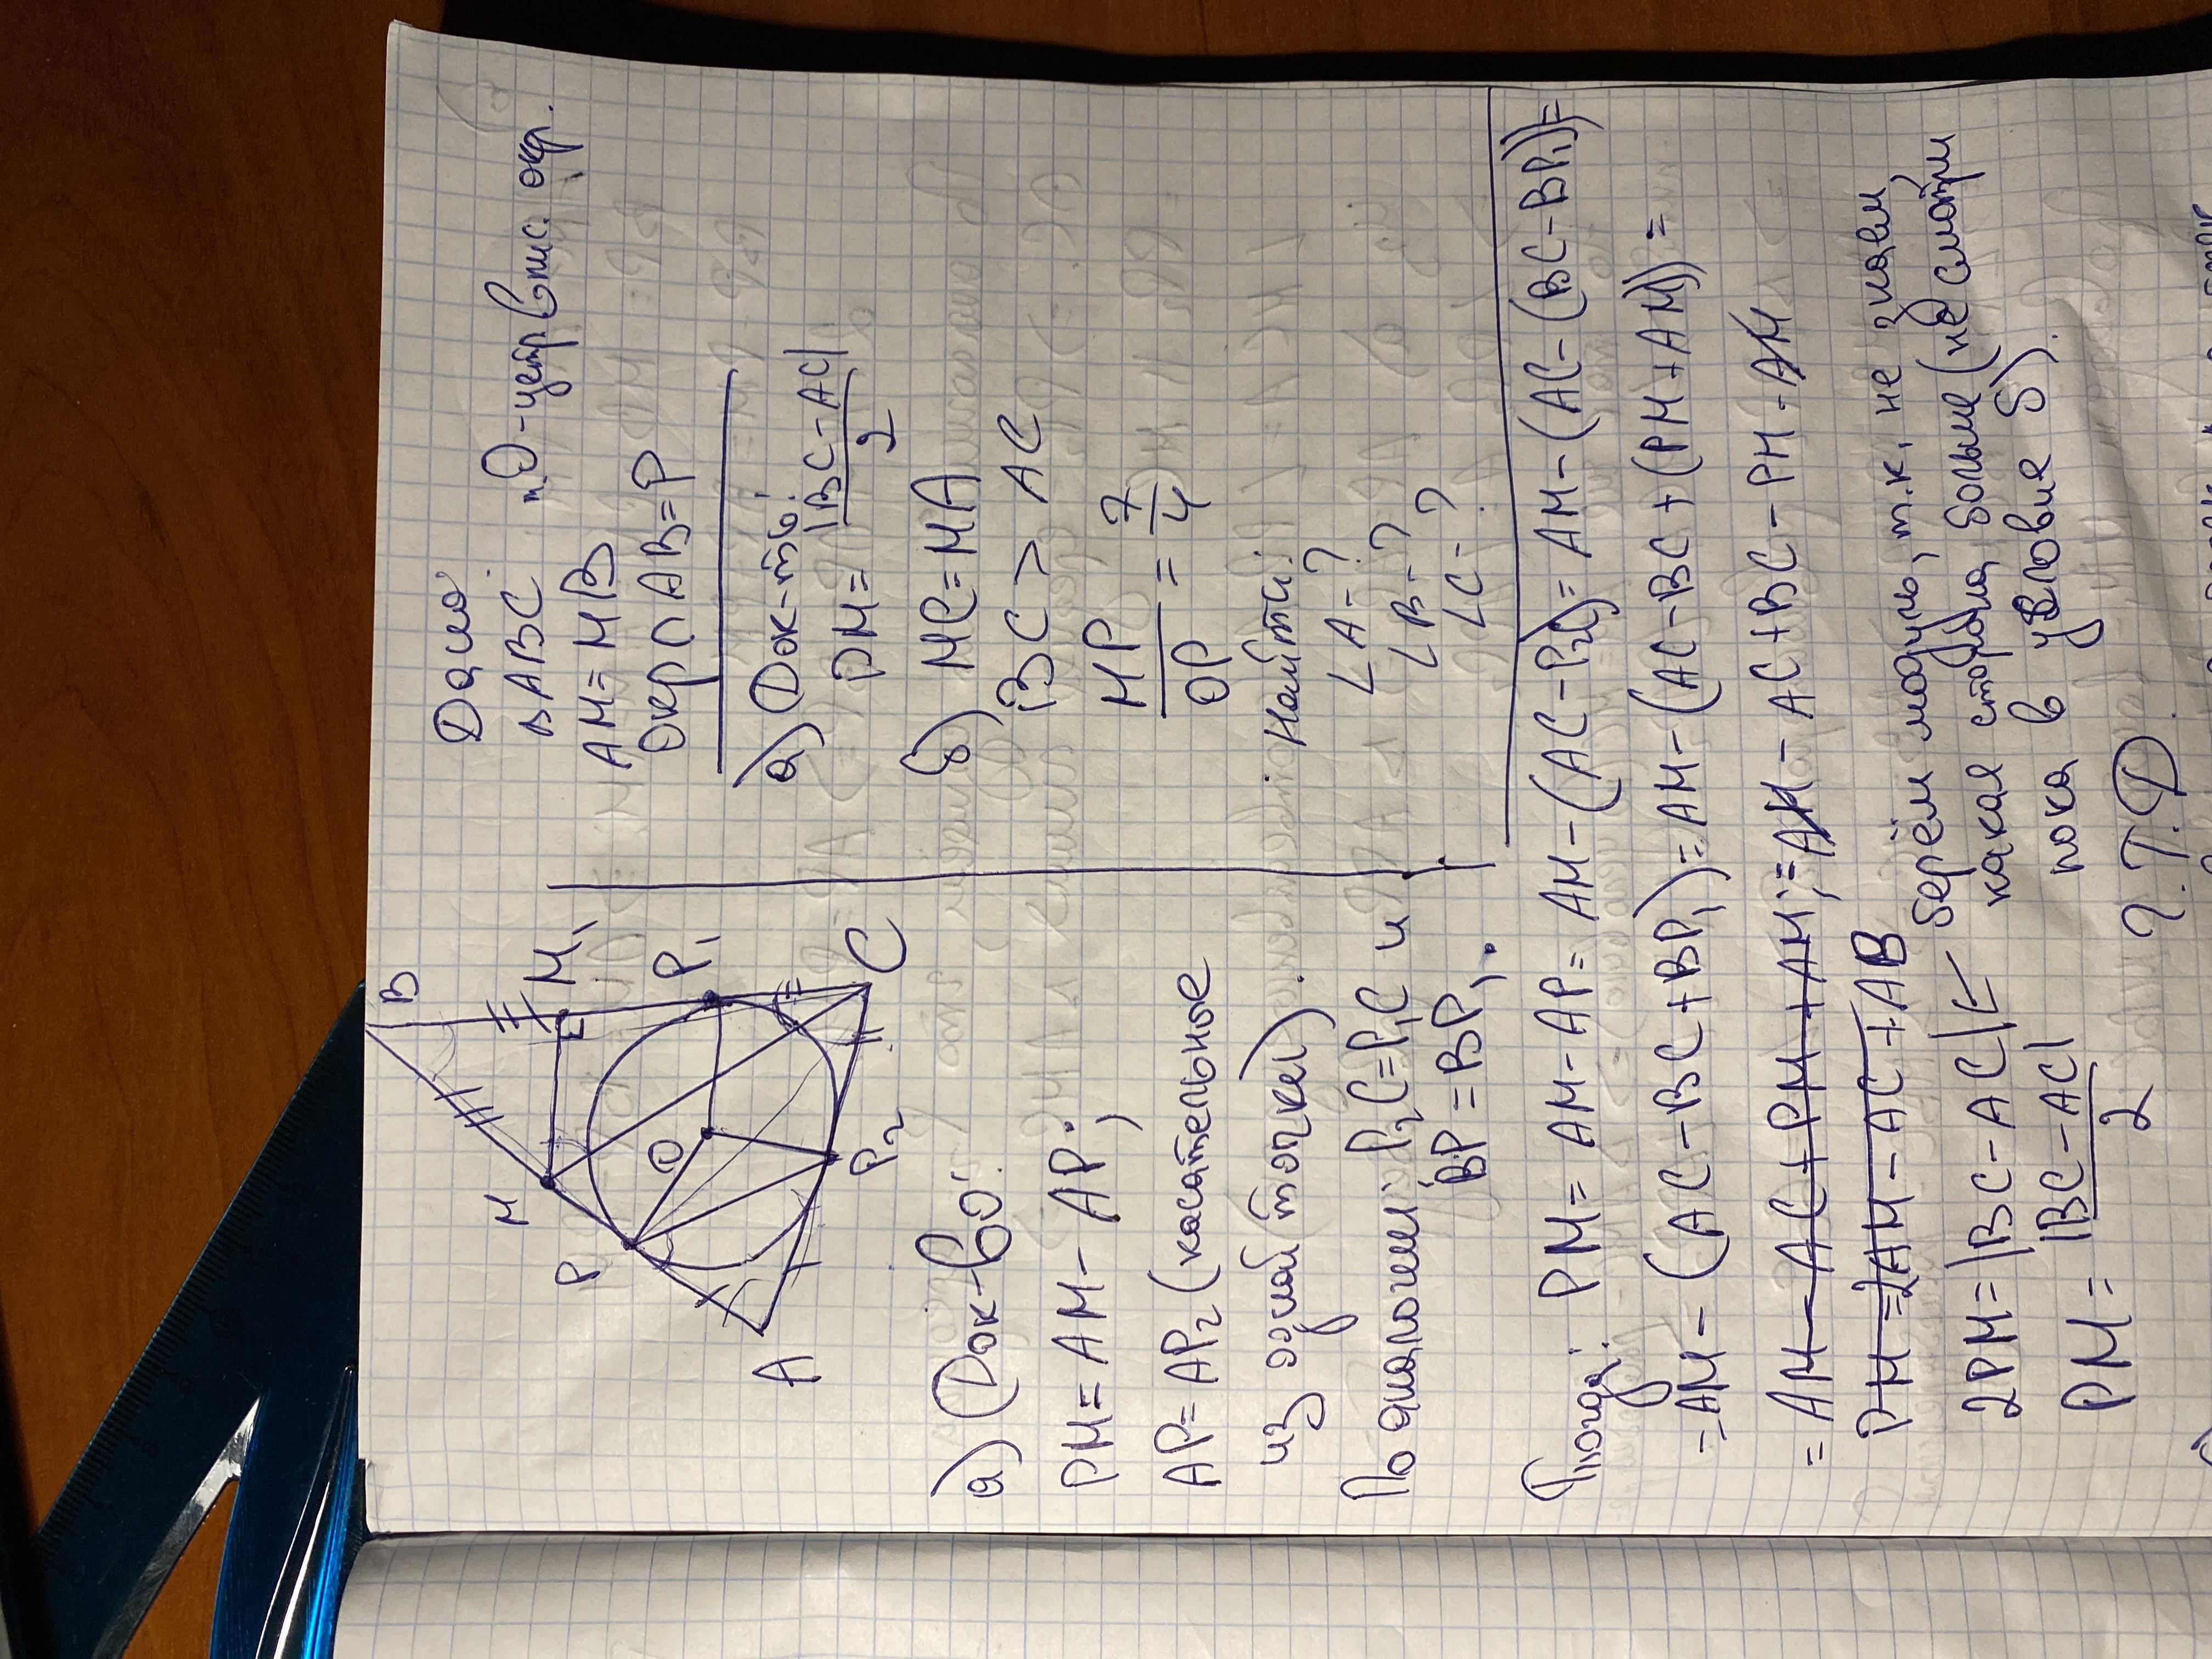 B
M
M₁
P
O
P₁
A
P₂
C
Дано:
△ABC "O - центр впис. окр.
AM = MB
Окр ∩ AB = P
а) Док-ть:
PM = |BC - AC| / 2
б) MC = MA
BC > AC
MP / OP = 7/4
Найти:
∠A - ?
∠B - ?
∠C - ?
а) Док-во:
PM = AM - AP;
AP = AP₂ (касательные
из одной точки).
По аналогии: P₂C = P₁C и
BP = BP₁.
Тогда: PM = AM - AP = AM - (AC - P₂C) = AM - (AC - (BC - BP₁)) =
= AM - (AC - BC + BP₁) = AM - (AC - BC + (PM + AM)) =
= AM - AC + PM + AM; = AM - AC + BC - PM - AM
PM = 2AM - AC + AB
2PM = |BC - AC| ← берём модуль, т.к. не знаем,
какая сторона больше (не смотри
PM = |BC - AC| / 2 пока в условие б).
Ч.Т.Д.